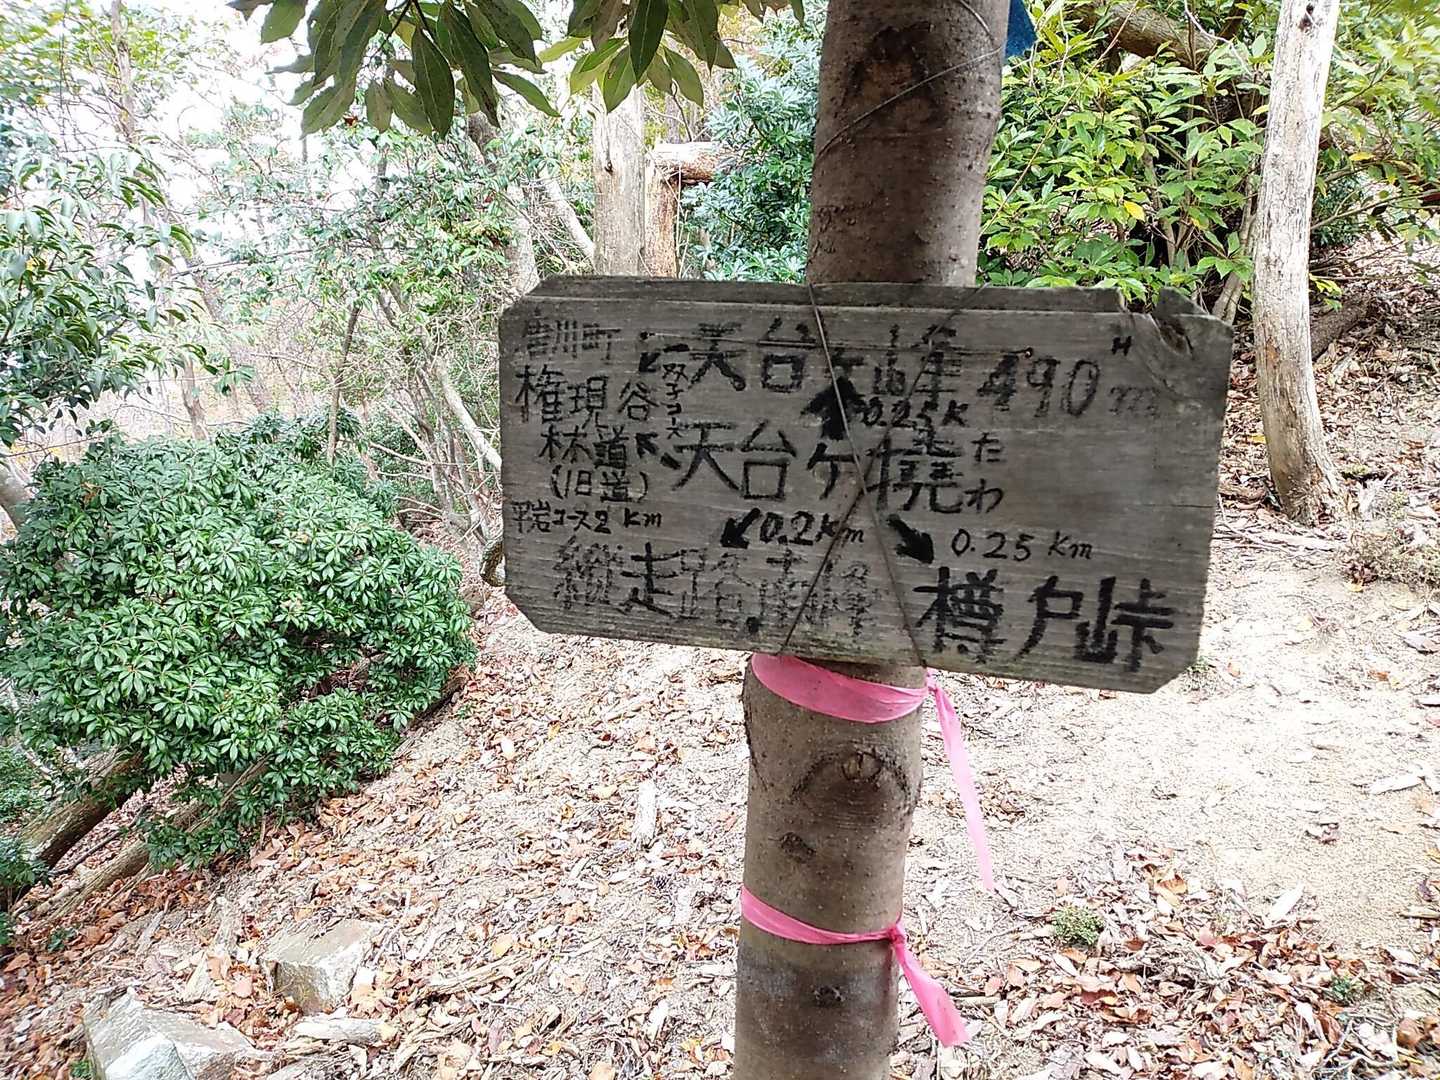 唐川町
天台ケ峰 490m
権現谷
0.25K
林道
天台ケ撓 たわ
(旧道)
平岩コース2km
0.2km
0.25km
縦走路南峰
樽戸峠